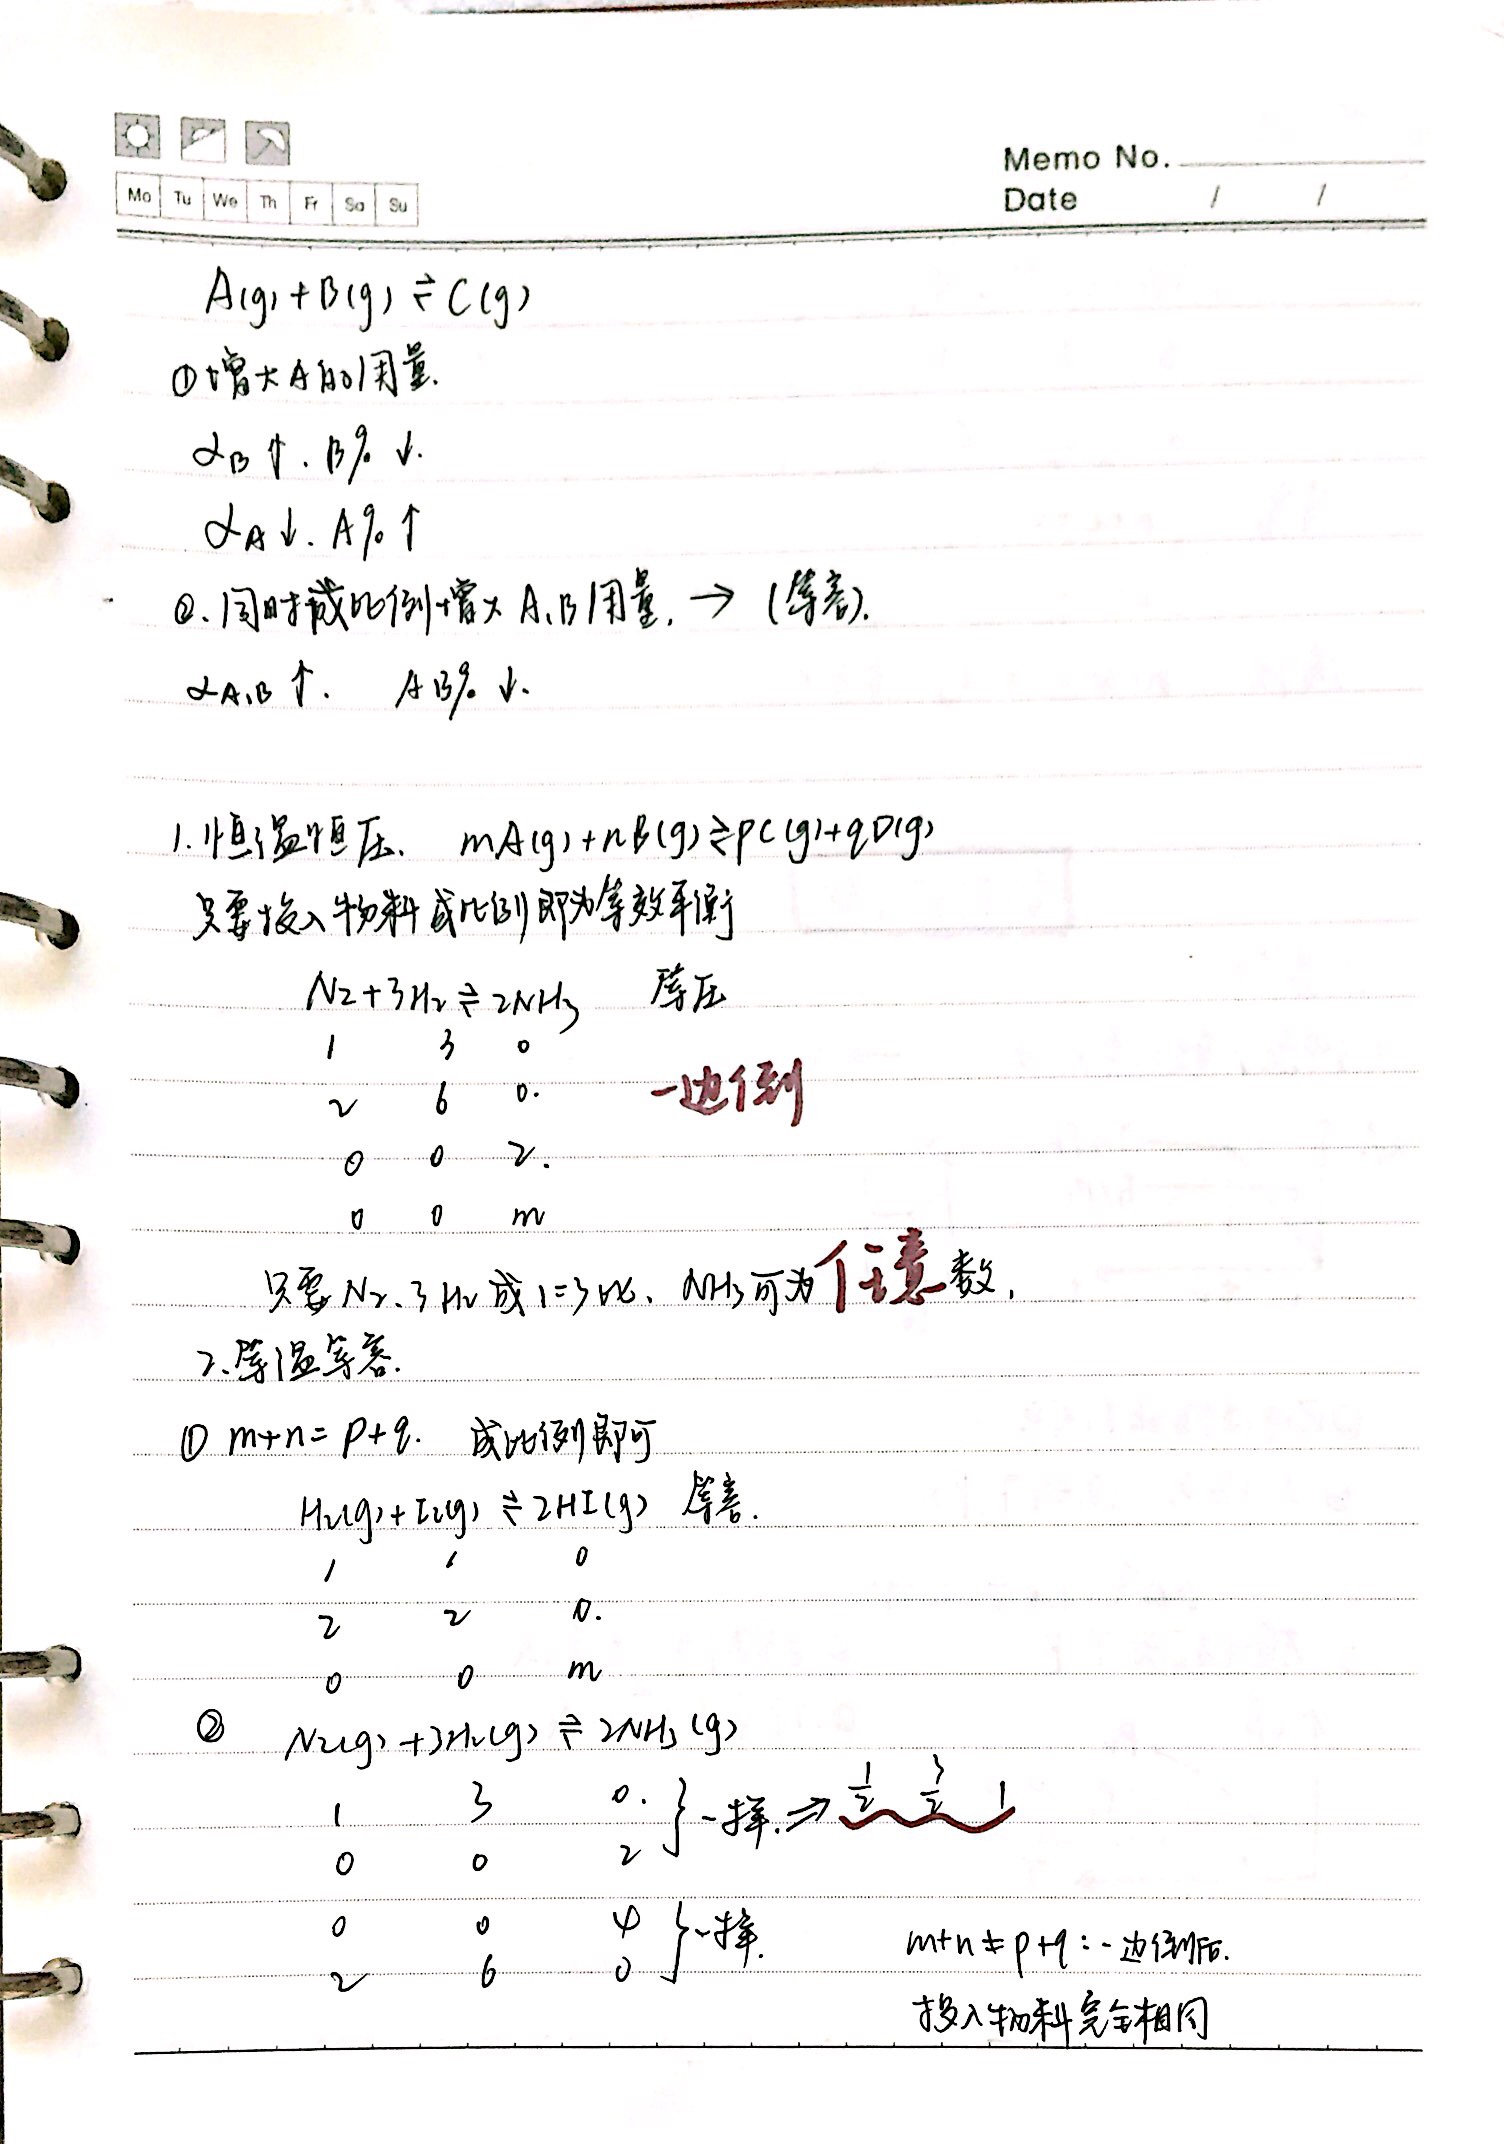 Memo No.
Mo Tu We Th Fr Sa Su
Date / /
A(g)+B(g)⇌C(g)
①增大A的用量.
αB↑. B%↓.
αA↓. A%↑
②.同时成比例增大A、B用量. → (等容).
αA、B↑. AB%↓.
1.恒温恒压. mA(g)+nB(g)⇌pC(g)+qD(g)
只要投入物料成比例即为等效平衡
N2+3H2⇌2NH3 等压
1 3 0
2 6 0. 一边倒
0 0 2.
0 0 m
只要N2、3H2成1=3比、NH3可为任意数.
2.等温等容.
① m+n=p+q. 成比例即可
H2(g)+I2(g)⇌2HI(g) 等容.
1 1 0
2 2 0.
0 0 m
② N2(g)+3H2(g)⇌2NH3(g)
1 3 0. }一样. ⇒ 1/2 3/2 1
0 0 2
0 0 4 }一样.
2 6 0
m+n≠p+q:一边倒后.
投入物料完全相同